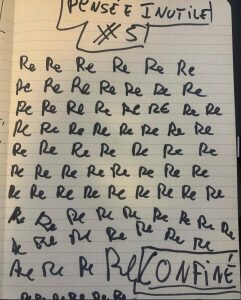 PENSÉE INUTILE
# 5
Re Re Re Re Re Re
Re Re Re Re Re Re Re
Re Re Re Re Re RE Re Re
Re Re Re Re Re Re Re Re
Re Re Re Re Re Re
Re Re Re Re Re Re Re
Re Re Re Re Re Re Re Re
Re Re Re Re Re Re Re Re Re
Re Re Re Re Re Re Re
Re Re Re Re CONFINÉ
Re Re Re Re Re Re